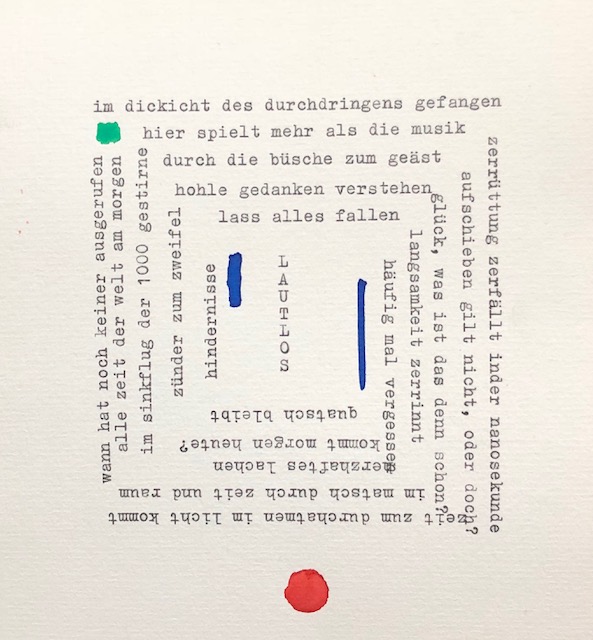 im dickicht des durchdringens gefangen
hier spielt mehr als die musik
durch die büsche zum geäst
hohle gedanken verstehen
lass alles fallen
zerrüttung zerfällt inder nanosekunde
aufschieben gilt nicht, oder doch?
glück, was ist das denn schon?
langsamkeit zerrinnt
häufig mal vergessen
zeit zum durchatmen im licht kommt
im matsch durch zeit und raum
herzhaftes lachen
kommt morgen heute?
quatsch bleibt
wann hat noch keiner ausgerufen
alle zeit der welt am morgen
im sinkflug der 1000 gestirne
zünder zum zweifel
hindernisse
LAUTLOS